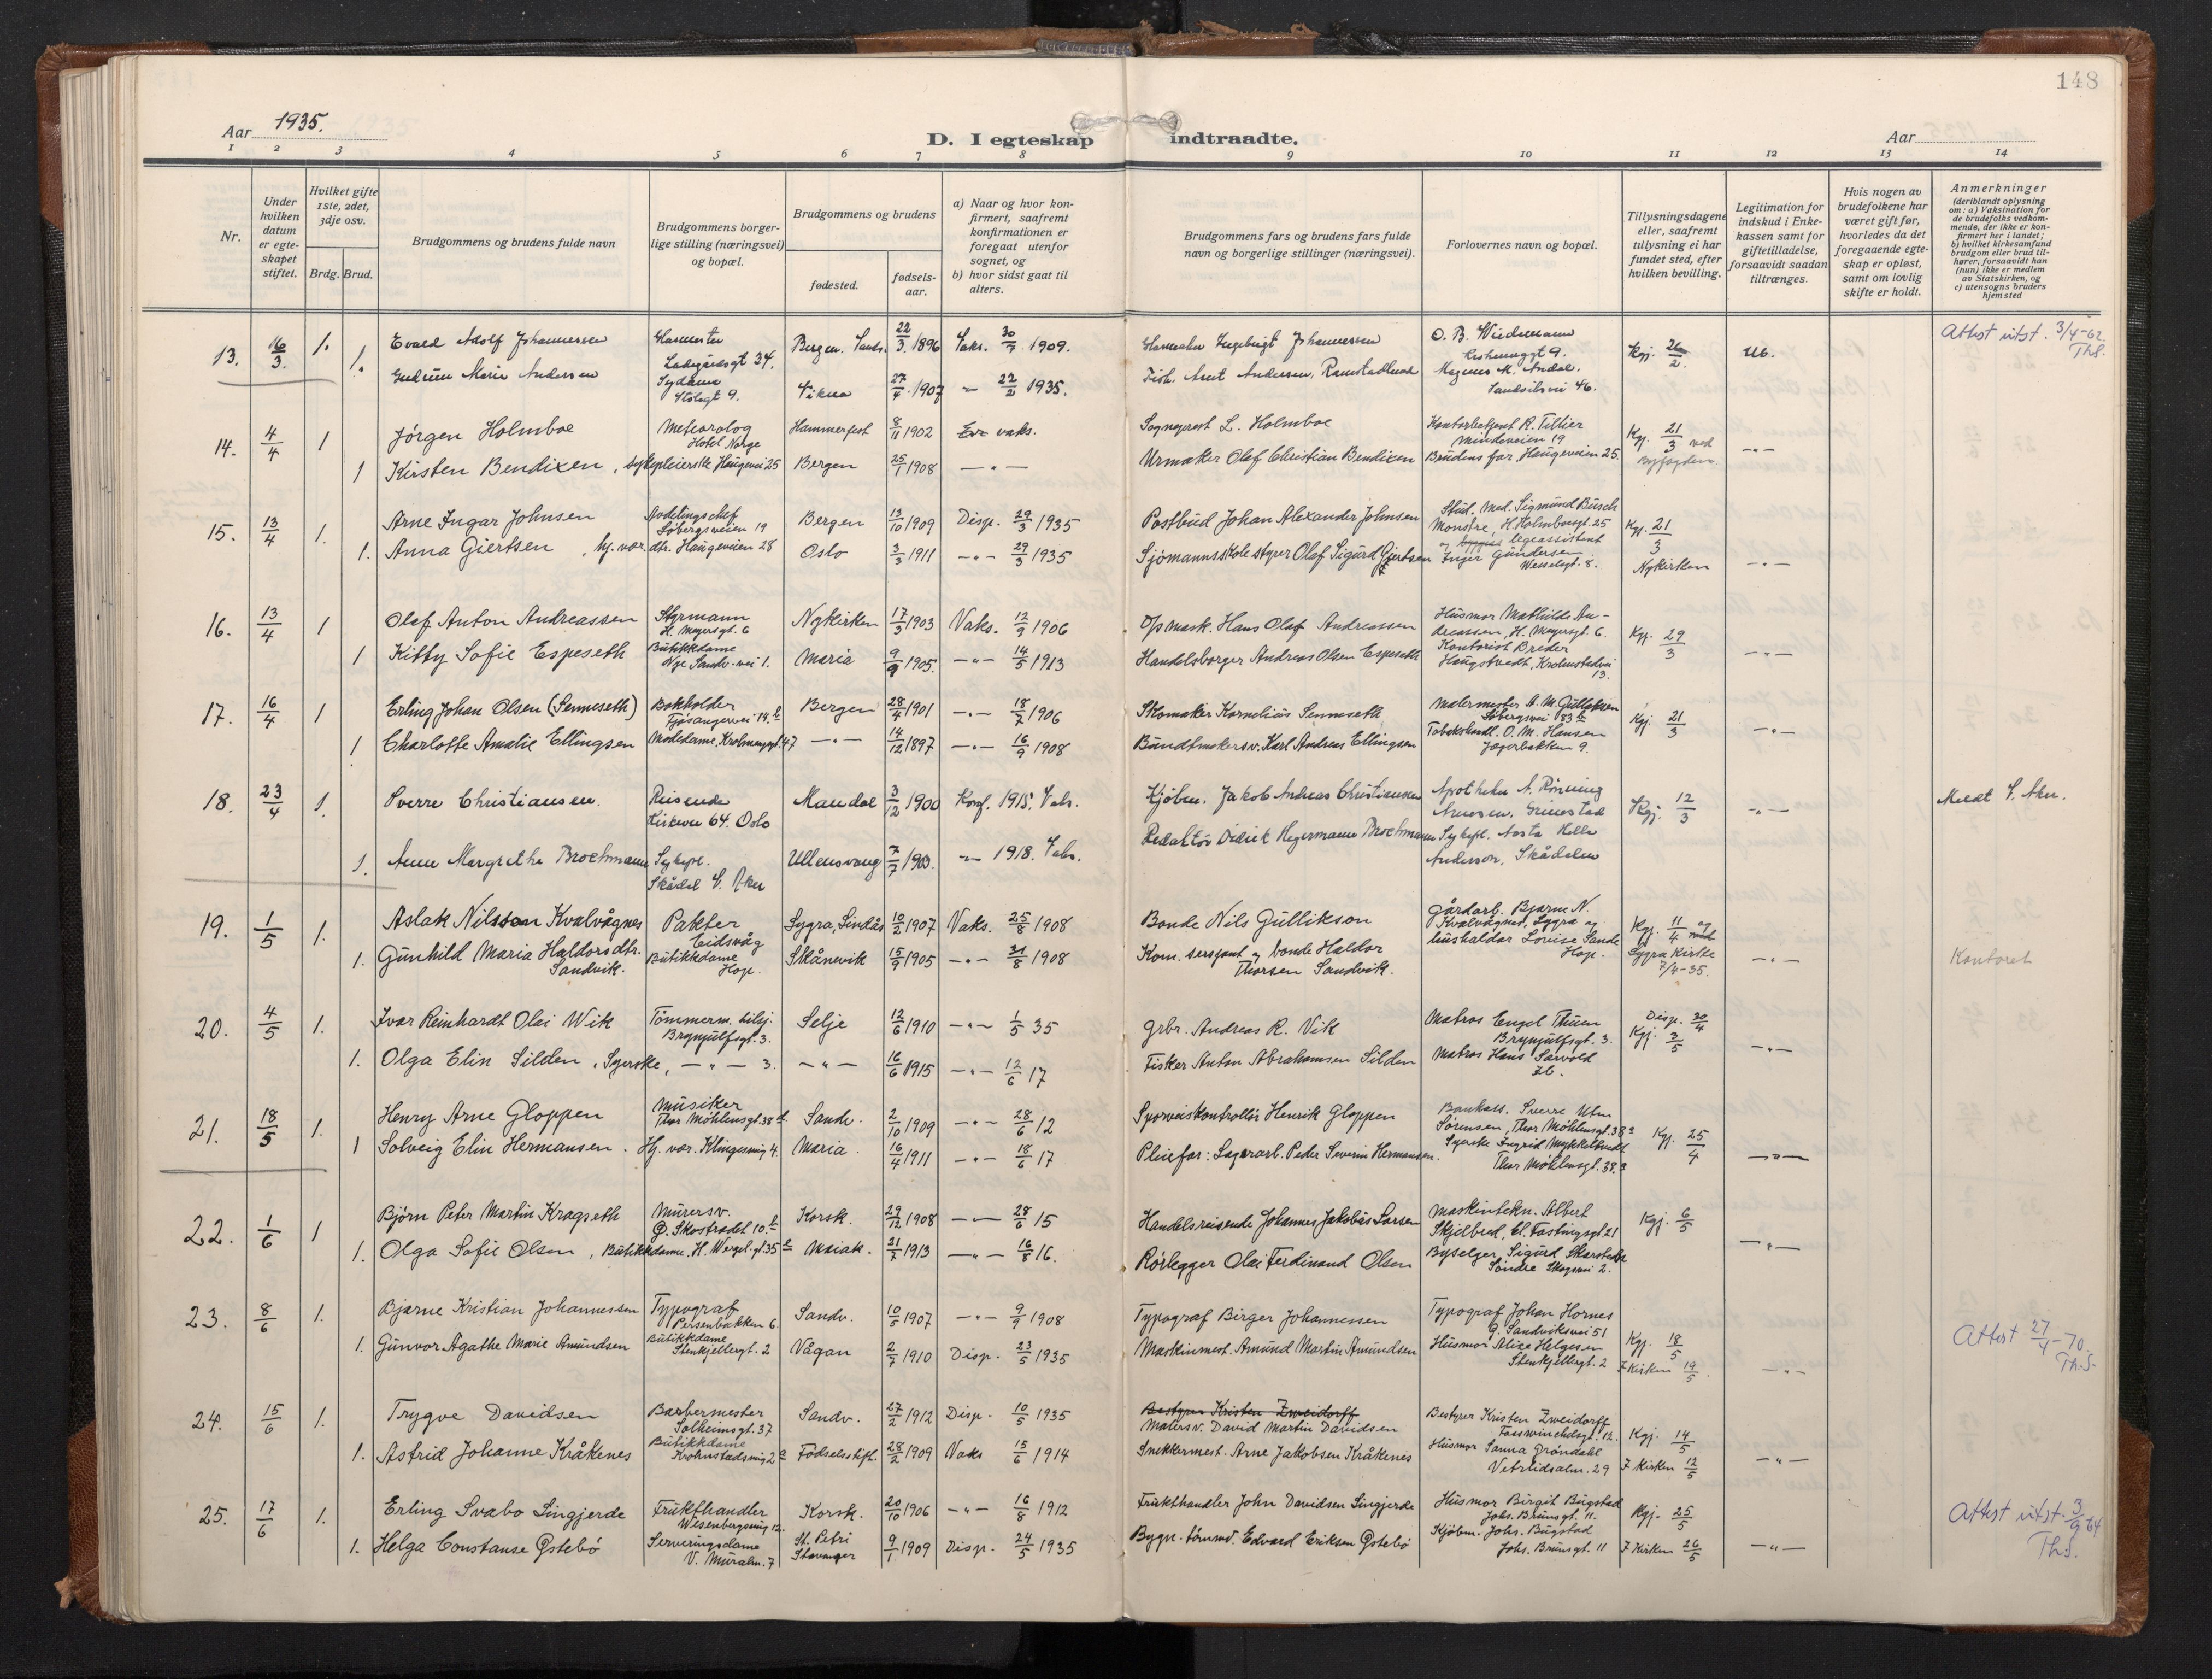 148
Aar 1935.
D. I egteskap indtraadte.
Aar
1 2 3 4 5 6 7 8 9 10 11 12 13 14
Nr.
Under hvilken datum er egteskapet stiftet.
Hvilket gifte 1ste, 2det, 3dje osv.
Brdg. Brud.
Brudgommens og brudens fulde navn
Brudgommens borgerlige stilling (næringsvei) og bopæl.
Brudgommens og brudens
fødested.
fødselsaar.
a) Naar og hvor konfirmert, saafremt konfirmationen er foregaat utenfor sognet, og
b) hvor sidst gaat til alters.
Brudgommens fars og brudens fars fulde navn og borgerlige stillinger (næringsvei).
Forlovernes navn og bopæl.
Tillysningsdagene eller, saafremt tillysning ei har fundet sted, efter hvilken bevilling.
Legitimation for indskud i Enkekassen samt for giftetilladelse, forsaavidt saadan tiltrænges.
Hvis nogen av brudefolkene har været gift før, hvorledes da det foregaaende egteskap er opløst, samt om lovlig skifte er holdt.
Anmerkninger (deriblandt oplysning om: a) Vaksination for de brudefolks vedkommende, der ikke er konfirmert her i landet; b) hvilket kirkesamfund brudgom eller brud tilhører, forsaavidt han (hun) ikke er medlem av Statskirken, og c) utensogns bruders hjemsted
13. 16/3. 1. Evald Adolf Johannessen Ladegårdsgt 34. Bergen. Sandv. 22/3. 1896 Vaks. 30/7 1909. Ingebrigt Johannessen O. B. Wiedemann 9. Kgj. 26/2 Ub. Attest utst. 3/4-62 Th.S.
1. Gudrun Marie Andersen Sydame Stølegt 9. Vikna 27/4 1907 -"- 22/2 1935. Fisk. Arnt Andersen, Ramstadlandet Magnus M. Andal. Sandviksvei 46.
14. 4/4 1 Jörgen Holmboe Meteorolog Hotel Norge Hammerfest 8/11 1902 vaks. Sogneprest L. Holmboe Kontorbetjent R. Tillier Mindeveien 19 Kgj. 21/3 ved Byfogden -"-
1 Kirsten Bendixen, sykepleierske Haugevei 25 Bergen 25/1 1908 -"- Urmaker Olaf Christian Bendixen Brudens far, Haugeveien 25.
15. 13/4 1. Arne Ingar Johnsen Avdelingschef Sóbergsveien 19 Bergen 13/10 1909 Disp. 29/3 1935 Postbud Johan Alexander Johnsen Stud. Med. Sigmund Busch Monstré, H. Holmboegt. 25 Kgj. 21/3
1. Anna Giertsen, hj.vær. dtr. Haugeveien 28 Oslo 3/3 1911 -"- 29/3 1935 Sjömannsskolestyrer Olaf Sigurd Gjertsen og legeassistent Inger Gundersen Wesselsgt. 8. Nykirken -"-
16. 13/4 1 Olaf Anton Andreassen Styrmann H. Meyersgt. 6 Nykirken 17/3 1903 Vaks. 12/9 1906 O/p mask. Hans Olaf Andreassen Husmor Mathilde Andreassen, H. Meyersgt. 6. Kgj. 29/3
1 Kitty Sofie Espeseth Butikkdame Nye Sandv. vei 1. Maria 9/9 1905. -"- 14/5 1913 Handelsborger Andreas Olsen Espeseth Kontorist Breder Haugstvedt, Krohnstedvei 13. -"-
17. 16/4 1 Erling Johan Olsen (Senneseth) Bokholder Fjösangervei 14.b Bergen 28/4 1901 -"- 18/7 1906 Skomaker Kornelius Senneseth Malermester A. M. Gullaksen Sóbergsvei 83b Kgj. 21/3
1 Charlotte Amalie Ellingsen Modedame, Krohnengsgt. 47 -"- 14/12 1897 -"- 16/9 1908 Bundtmakersv. Karl Andreas Ellingsen Tobakshandl. O. M. Hansen Jægerbakken 9. -"-
18. 23/4 1. Sverre Christiansen. Reisende Kirkevn 64. Oslo Mandal 3/12 1900 Konf. 1915. Vaks. Kjöbm. Jakob Andreas Christiansen Apotheker A. Rönning Arnesen, Grimstad Kgj. 12/3 -"- Meldt V. Aker.
1. Anne Margrethe Brochmann Sykepl. Skådal V. Aker Ullensvang 7/7 1903. -"- 1918. Vaks. Redaktör Didrik Hegermann Brochmann Sykepl. Aasta Helle Anderson, Skådalen
19. 1/5 1. Aslak Nilsson Kvalvågnes Pakter Eidsvåg Lygra, Lindås 10/2 1907 Vaks. 25/8 1908 Bonde Nils Gullikson Gårdarb. Bjarne N. Kvalvågnes, Lygra og Kgj. 11/4 og
1. Gunhild Maria Haldorsdtr. Sandvik. Butikkdame Hop. Skånevik 15/9 1905 -"- 31/8 1908 Kom. sersjant og bonde Haldor Thorsen Sandvik. hushaldar Lovise Sande Hop. Lygra Kirke 7/4-35. -"- Kontoret
20. 4/5 1. Ivar Reinhardt Olai Wik Tömmerm. hilsj. Brynjulfsgt. 3. Selje 12/6 1910 -"- 1/5 35 Grbr. Andreas R. Vik Matros Engel Thuen Brynjulfsgt. 3. Disp. 30/4 Kgj. 3/5
1. Olga Elin Silden, Syerske, -"- 3. -"- 16/6 1915 -"- 12/6 17 Fisker Anton Abrahamsen Silden Matros Hans Sarvold Ib. -"-
21. 18/5 1. Henry Arne Gloppen Musiker Thor Möhlensgt. 38 d. Sandv. 2/10 1909 -"- 28/6 12 Sporveiskontrollör Henrik Gloppen Bankass. Sverre Utm Sörensen, Thor Möhlensgt. 38 a
1 Solveig Elin Hermansen. Hj. vær. Klingesmug 4. Maria. 16/4 1911 -"- 18/6 17 Pleiefar: Lagerarb. Peder Severin Hermansen. Syerske Ingrid Mykkeltvedt Thor Möhlensgt. 38.a Kgj. 25/4 -"-
22. 1/6 1 Björn Peter Martin Kragseth Murersv. G. Skostredet 10.b Korsk. 29/12 1908 -"- 28/6 15 Handelsreisende Johannes Jakobus Larsen Maskintekn. Albert Skjelbred, Cl. Fastingsgt 21 Kgj. 6/5
1. Olga Sofie Olsen, Butikkdame. H. Wergel. gt 35 b Mariak. 21/7 1913 -"- 16/8 16. Rörlegger Olai Ferdinand Olsen Byselger, Sigurd Skarstedt Söndre Skogvei 2. -"-
23. 8/6 1. Bjarne Kristian Johannessen Typograf Persenbakken 6. Sandv. 10/5 1907 -"- 9/9 1908 Typograf Birger Johannessen Typograf Johan Hornes G. Sandviksvei 51 Kgj. 18/5
1. Gunvor Agathe Marie Amundsen Butikkdame Stenkjellergt. 2 Vågan 2/7 1910 Disp. 23/5 1935 Maskinmest. Amund Martin Amundsen Husmor Alice Helgesen Stenkjellergt. 2 I Kirken 19/5. -"- Attest 27/4-70. Th.S.
24. 15/6 1. Trygve Davidsen Barbermester Solheimsgt. 37 Sandv. 27/2 1912 Disp. 10/5 1935 Bestyrer Kristen Zweidorff Malersv. David Martin Davidsen Bestyrer Kristen Zweidorff Fosswinckelsgt. 12. Kgj. 14/5
1. Astrid Johanne Kråkenes Butikkdame Krohnstadsmug 2 a Födselsstift. 28/2 1909 Vaks 15/6 1914 Snekkermest. Arne Jakobsen Kråkenes Husmor Sanna Gröndahl Vetrlidsalm. 29 I Kirken 12/5 -"-
25. 17/6 1. Erling Svabo Lingjerde Frukthandler Wesenbergsmug 12. Korsk. 20/10 1906 -"- 16/8 1912 Frukthandler John Davidsen Lingjerde Husmor Birgit Bugstad Johs. Brunsgt. 11. Kgj. 25/5 Attest utst. 3/9 64 Th.S.
1. Helga Constanse Östebö Serveringsdame V. Muralm. 7 St. Petri Stavanger 9/1 1909 Disp. 24/5 1935 Bygn. tömrm. Edvard Eriksen Östebö Kjöbm. Johs. Bugstad Johs. Brunsgt. 11 I Kirken 26/5 -"-